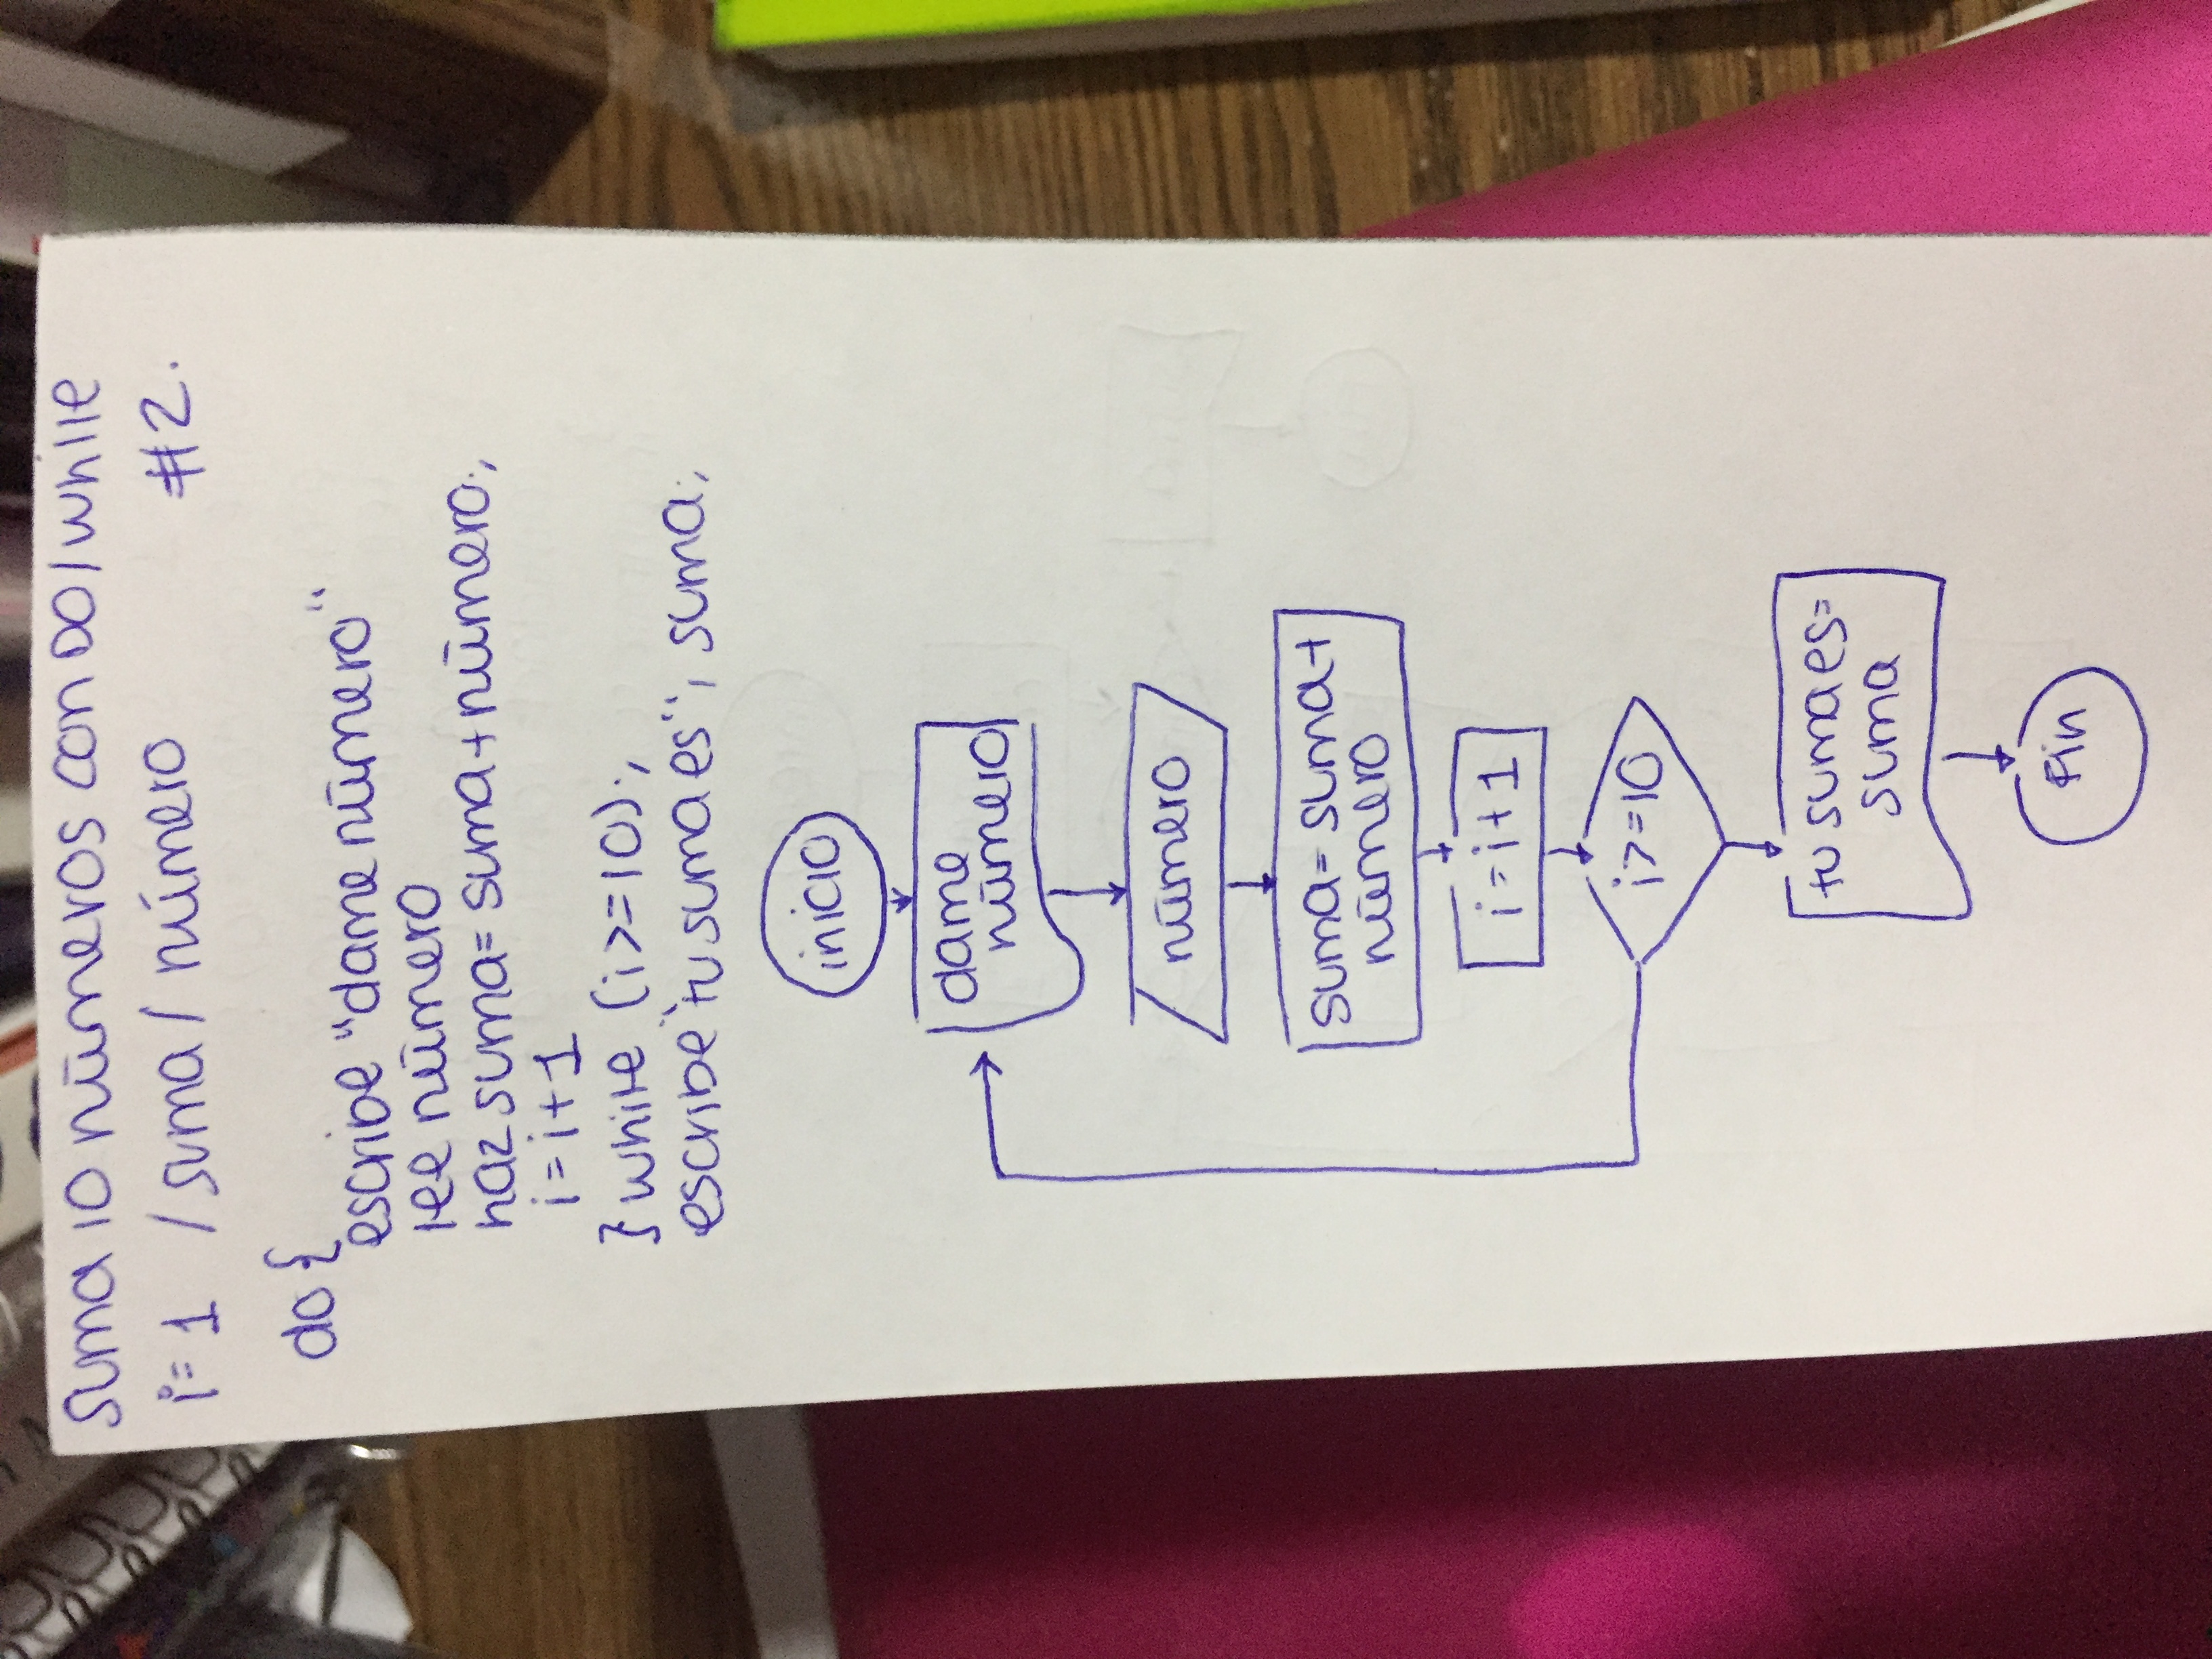 suma 10 números con DO/while
i=1 /suma/ número #2.
do {
escribe "dame número"
lee número
haz suma= suma+número;
i=i+1
} while (i>=10);
escribe "tu suma es", suma;
inicio
dame
número
número
suma= suma+
número
i=i+1
i>=10
tu suma es=
suma
Fin